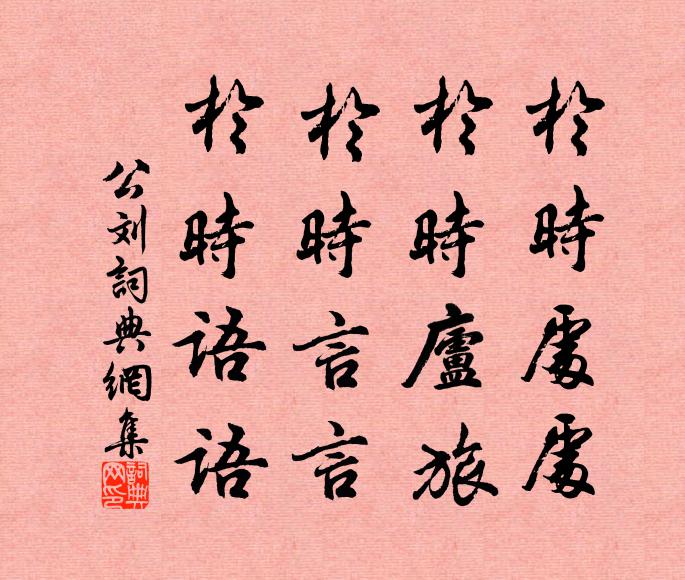 於時處處
於時廬旅
於時言言
於時語語
公刘詞典網集
詞典网印